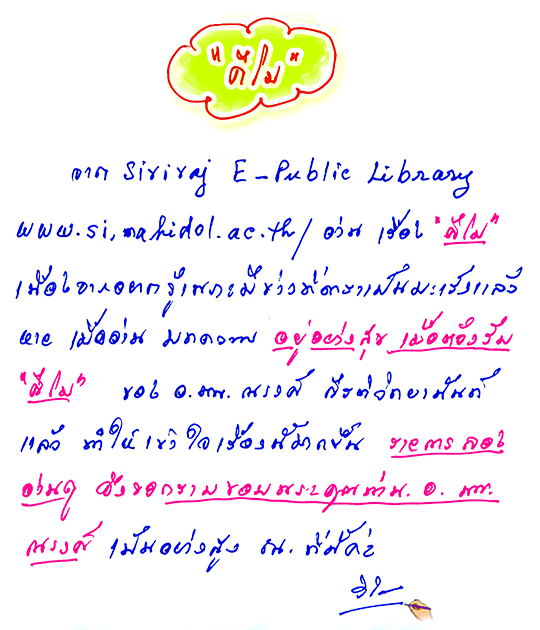 "คีโม"
จาก Siriraj E-Public Library
www.si.mahidol.ac.th/ อ่าน เรื่อง "คีโม"
เนื่องจากอยากรู้เพราะมีข่าวที่ดาราเป็นมะเร็งแล้ว
หาย เมื่ออ่าน บทความ อยู่อย่างสุข เมื่อต้องรับ
"คีโม" ของ อ.นพ. ณรงค์
แล้ว ทำให้เข้าใจเรื่องนี้มากขึ้น ลอง
อ่านดู จึงขอกราบขอบพระคุณท่าน. อ. นพ.
ณรงค์ เป็นอย่างสูง ณ. ที่นี้ค่ะ